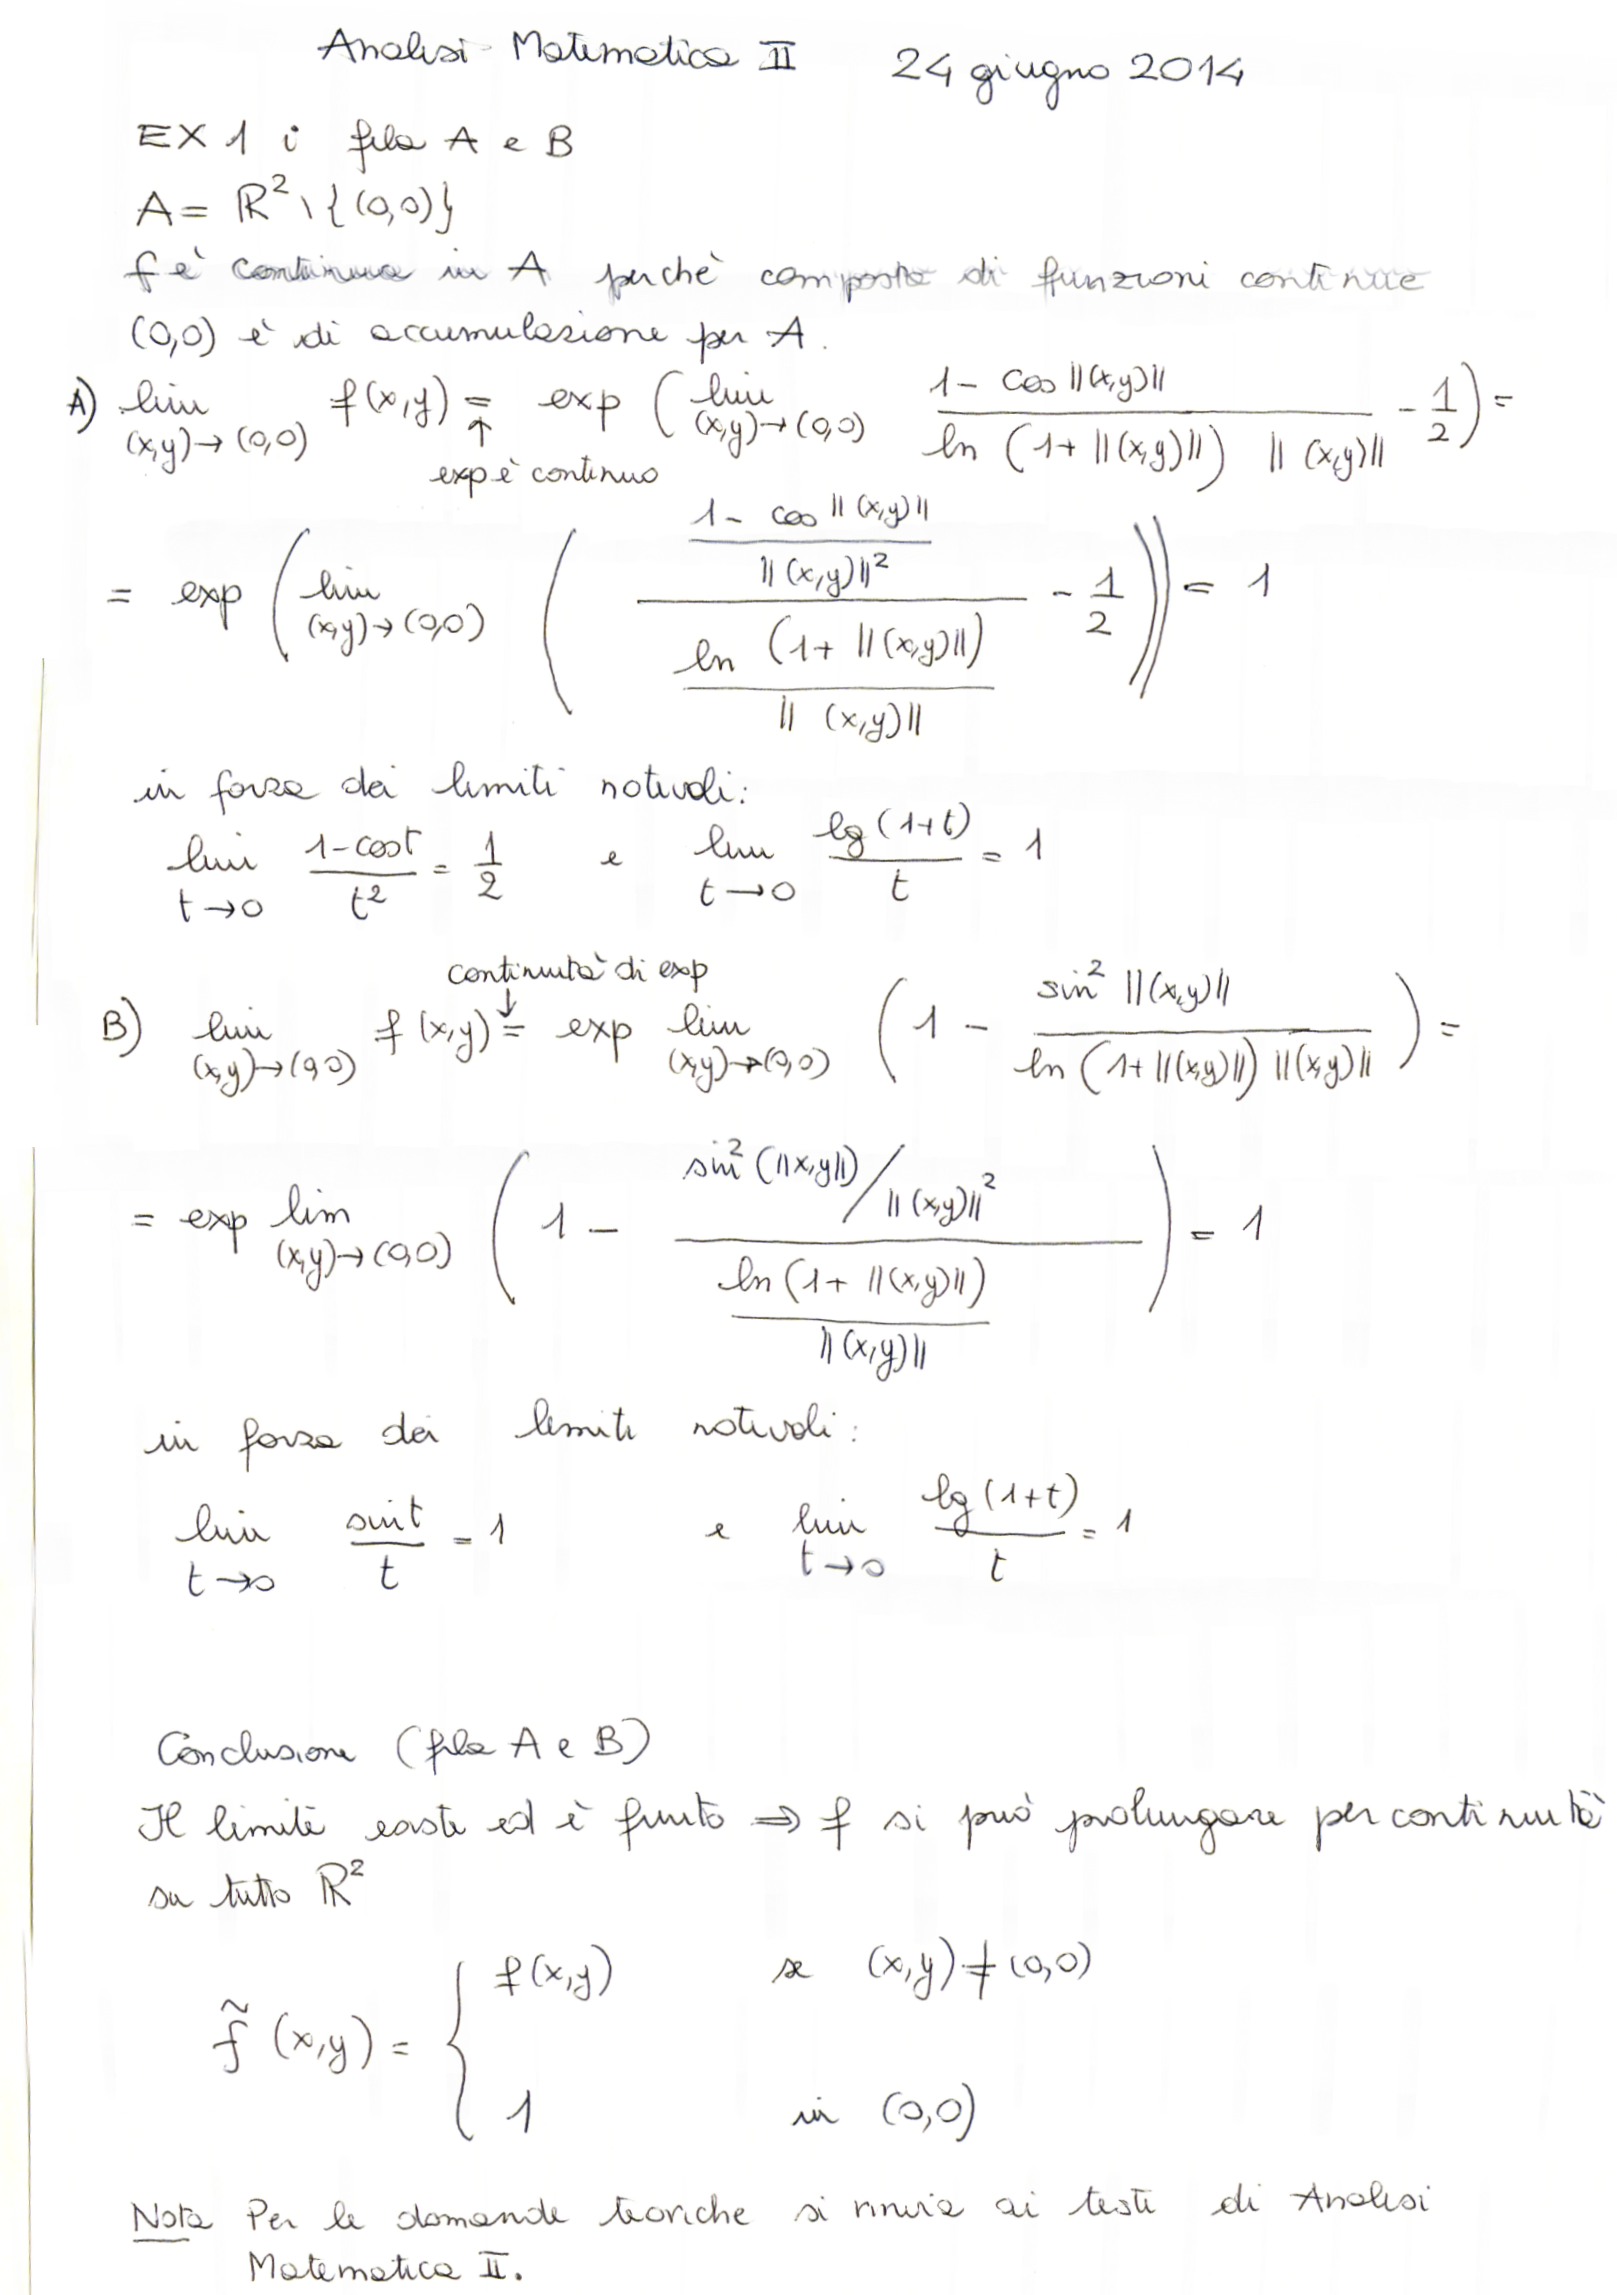 Analisi Matematica II 24 giugno 2014
EX 1 i fila A e B
A = ℝ² \ {(0,0)}
f è continua in A perchè composta di funzioni continue
(0,0) è di accumulazione per A.
A) lim_{(x,y)→(0,0)} f(x,y) = exp ( lim_{(x,y)→(0,0)} (1 - cos ||(x,y)||) / (ln (1+ ||(x,y)||) ||(x,y)||) - 1/2 ) =
↑
exp è continuo
= exp ( lim_{(x,y)→(0,0)} ( ((1 - cos ||(x,y)||) / ||(x,y)||²) / (ln (1+ ||(x,y)||) / ||(x,y)||) - 1/2 )) = 1
in forza dei limiti notevoli:
lim_{t→0} (1-cos t)/t² = 1/2 e lim_{t→0} lg(1+t)/t = 1
continuità di exp
↓
B) lim_{(x,y)→(0,0)} f(x,y) = exp lim_{(x,y)→(0,0)} ( 1 - sin² ||(x,y)|| / (ln (1+ ||(x,y)||) ||(x,y)||) ) =
= exp lim_{(x,y)→(0,0)} ( 1 - (sin² (||x,y||) / ||(x,y)||²) / (ln (1+ ||(x,y)||) / ||(x,y)||) ) = 1
in forza dei limiti notevoli:
lim_{t→0} sin t / t = 1 e lim_{t→0} lg(1+t)/t = 1
Conclusione (fila A e B)
Il limite esiste ed è finito ⇒ f si può prolungare per continuità
su tutto ℝ²
f̃(x,y) = { f(x,y) se (x,y) ≠ (0,0)
1 in (0,0)
Nota Per le domande teoriche si rinvia ai testi di Analisi
Matematica II.